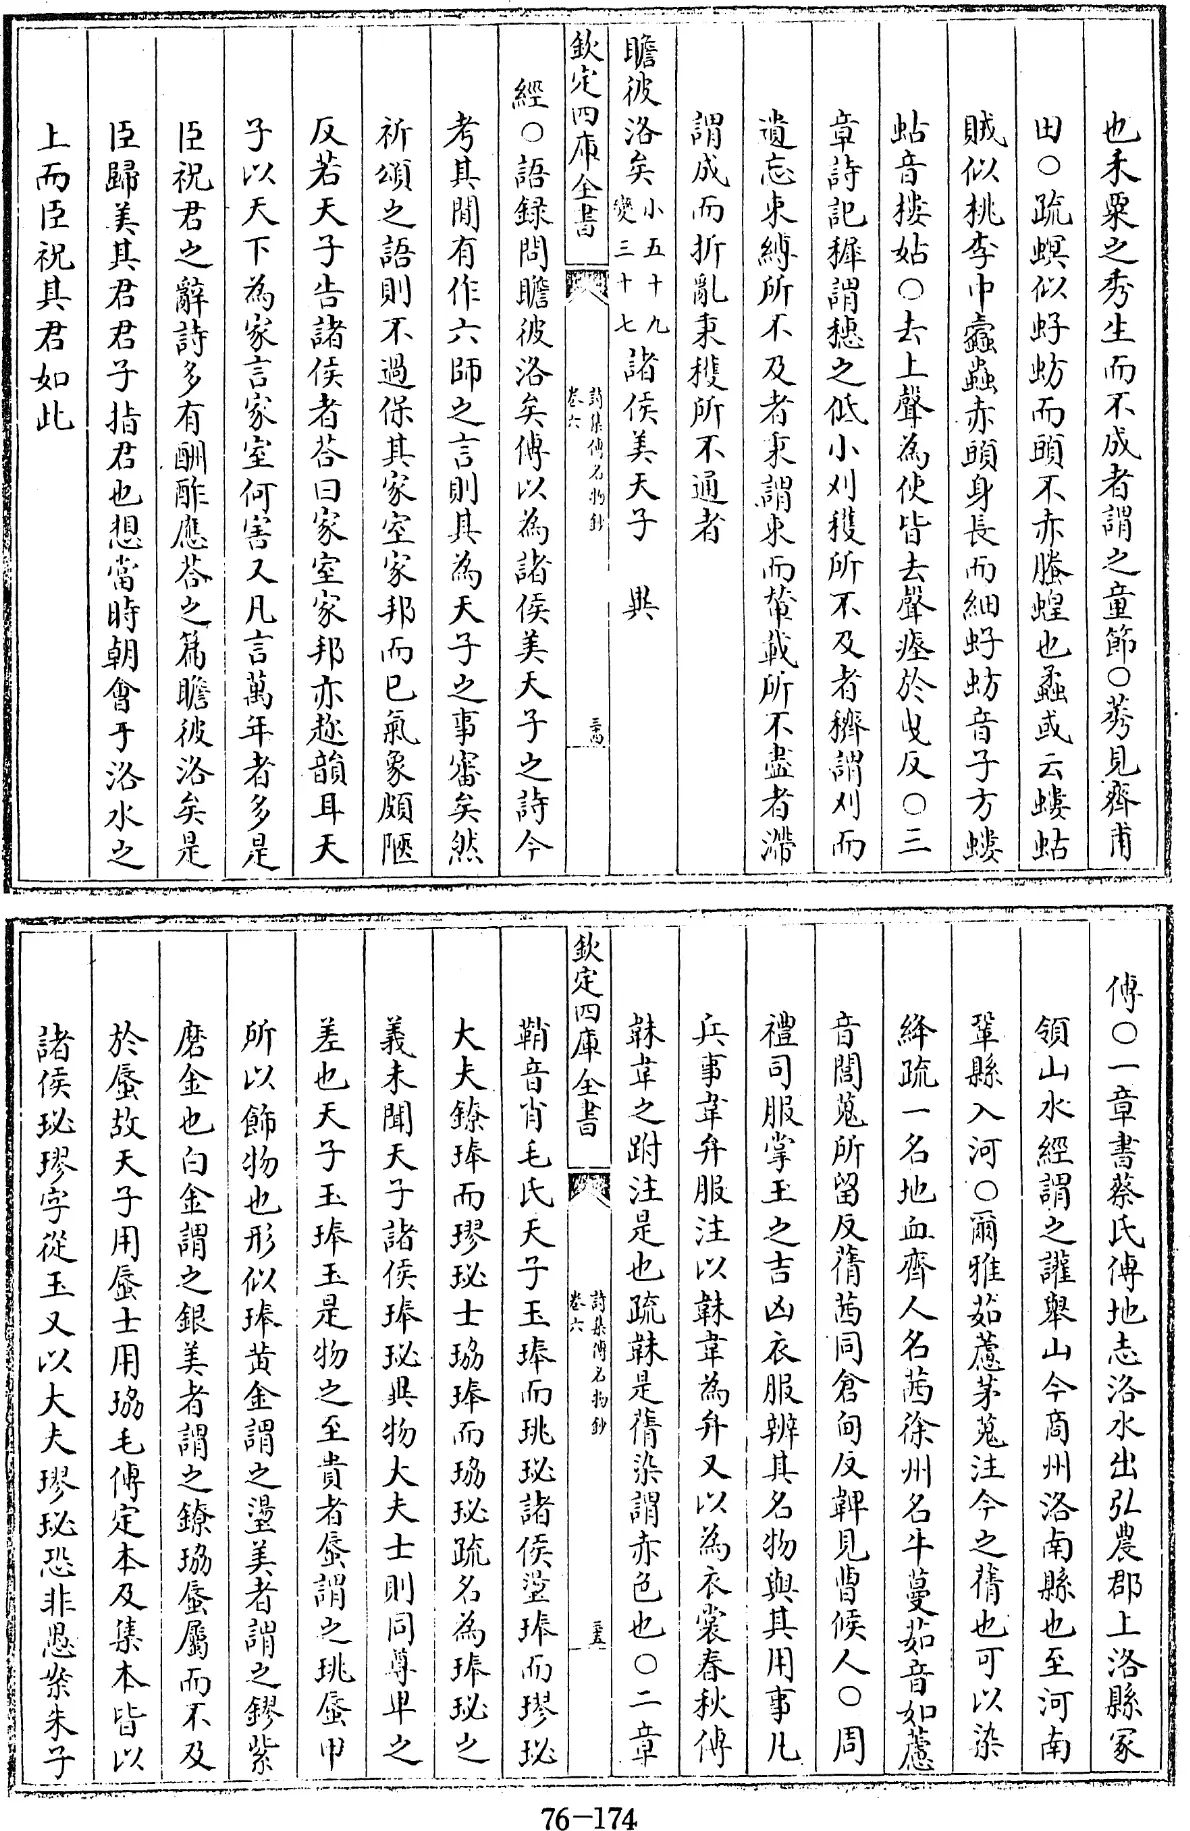 也禾粟之秀生而不成者謂之童節○莠見齊甫
田○疏螟似虸蚄而頭不赤螣蝗也蟊或云螻蛄
賊似桃李中蠹蟲赤頭身長而細虸蚄音子方螻
蛄音摟姑○去上聲為使皆去聲瘞於曳反○三
章詩記穉謂穗之低小刈穫所不及者穧謂刈而
遺忘束縛所不及者秉謂束而輦載所不盡者滯
謂成而折亂秉穫所不通者
瞻彼洛矣小五十九變三十七諸侯美天子 興
欽定四庫全書 詩集傳名物鈔 卷六 三十四
經○語録問瞻彼洛矣傳以為諸侯美天子之詩今
考其間有作六師之言則其為天子之事審矣然
祈頌之語則不過保其家室家邦而已氣象頗陋
反若天子告諸侯者荅曰家室家邦亦趂韻耳天
子以天下為家言家室何害又凡言萬年者多是
臣祝君之辭詩多有酬酢應荅之篇瞻彼洛矣是
臣歸美其君君子指君也想當時朝會于洛水之
上而臣祝其君如此
傳○一章書蔡氏傳地志洛水出弘農郡上洛縣冢
領山水經謂之讙舉山今商州洛南縣也至河南
鞏縣入河○爾雅茹藘茅蒐注今之蒨也可以染
絳疏一名地血齊人名茜徐州名牛蔓茹音如藘
音閭蒐所留反蒨茜同倉甸反韠見曹候人○周
禮司服掌王之吉凶衣服辨其名物與其用事凡
兵事韋弁服注以韎韋為弁又以為衣裳春秋傳
韎韋之跗注是也疏韎是蒨染謂赤色也○二章
欽定四庫全書 詩集傳名物鈔 卷六 三十五
鞘音肖毛氏天子玉琫而珧珌諸侯璗琫而璆珌
大夫鐐琫而璆珌士珕琫而珕珌疏名為琫珌之
義未聞天子諸侯琫珌異物大夫士則同尊卑之
差也天子玉琫玉是物之至貴者蜃謂之珧蜃甲
所以飾物也形似琫黄金謂之璗美者謂之鏐紫
磨金也白金謂之銀美者謂之鐐珕蜃屬而不及
於蜃故天子用蜃士用珕毛傳定本及集本皆以
諸侯珌璆字從玉又以大夫璆珌恐非愚案朱子
76—174